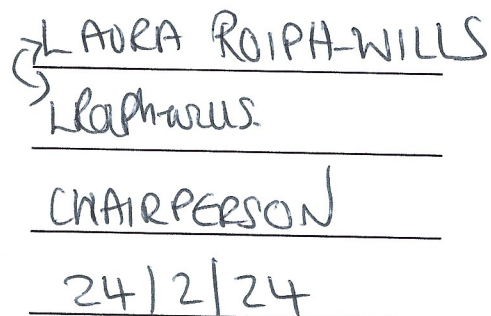 LAURA ROIPH-WILLS
LRoiph-wills.
CHAIRPERSON
24/2/24